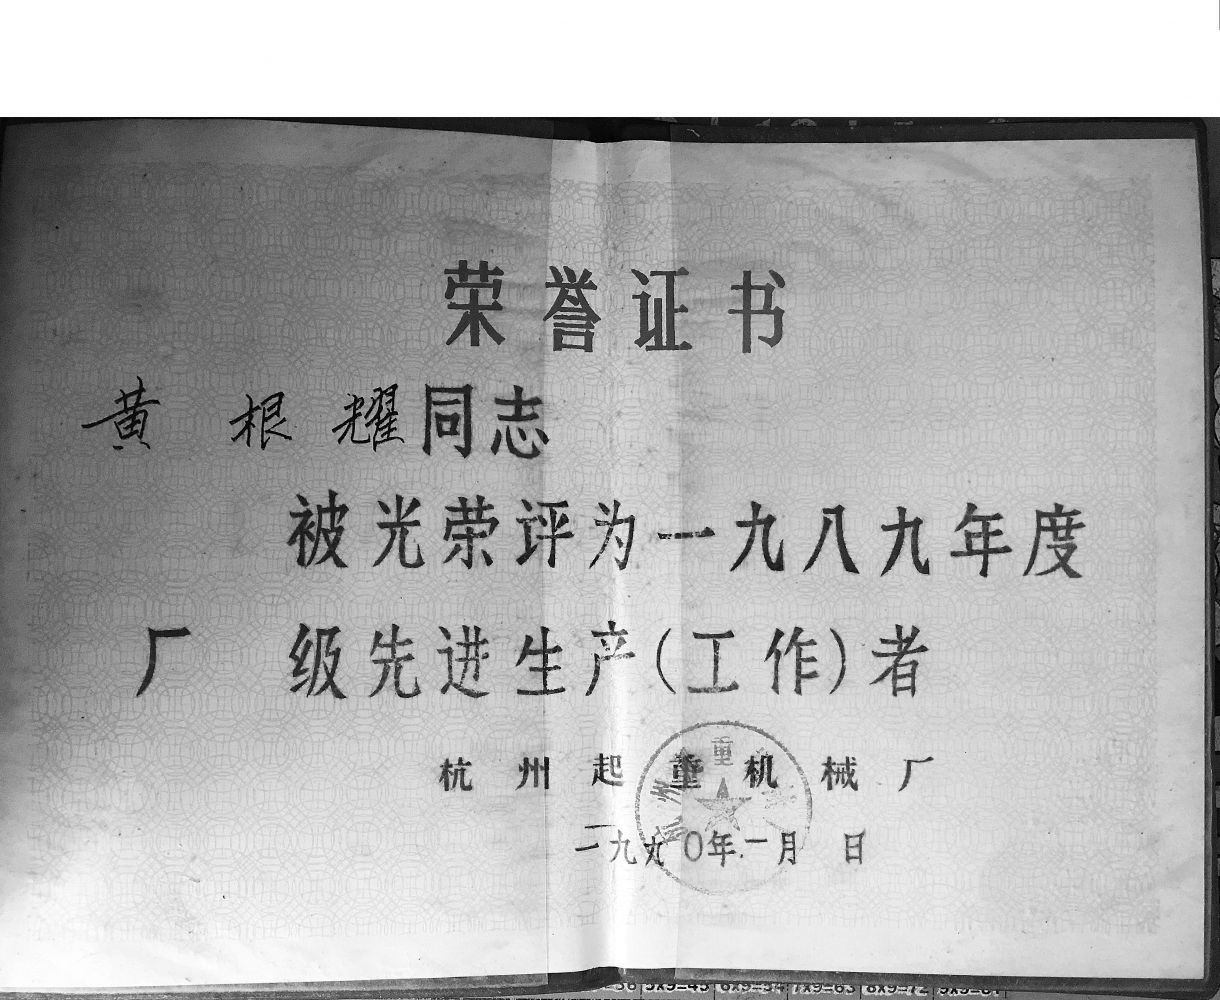 荣誉证书
黄根耀同志
被光荣评为一九八九年度
厂 级先进生产(工作)者
杭州起重机械厂
一九九〇年一月 日
5x9=45 6x9=54 7x9=63 8x9=72 9x9=81